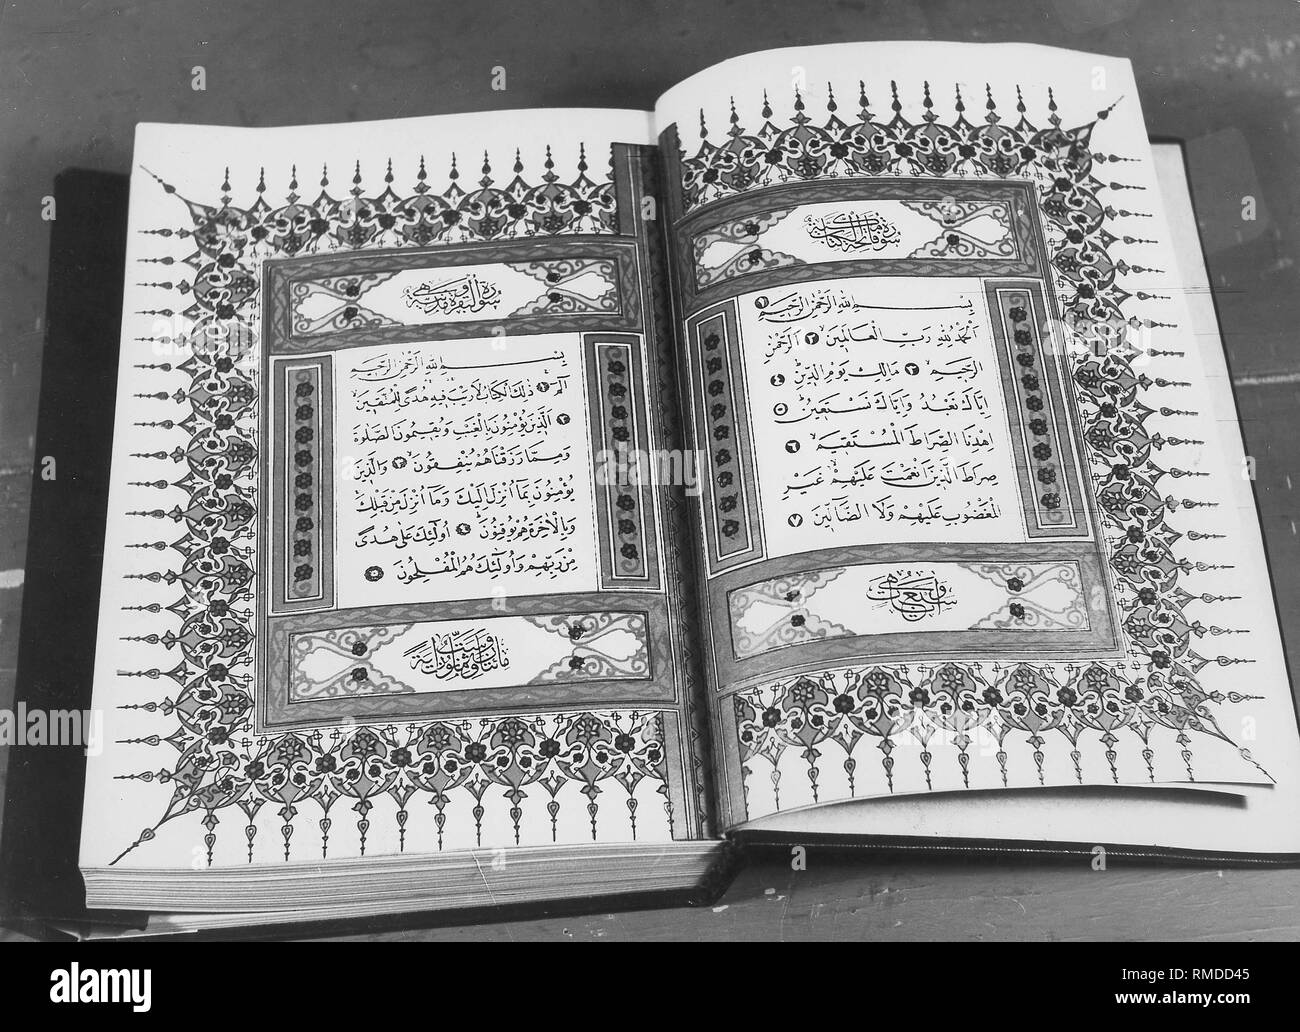 سورة فاتحة الكتاب
بِسْمِ اللهِ الرَّحْمٰنِ الرَّحِيمِ ١
اَلْحَمْدُ لِلّٰهِ رَبِّ الْعَالَمِينَ ٢ اَلرَّحْمٰنِ
الرَّحِيمِ ٣ مَالِكِ يَوْمِ الدِّينِ ٤
اِيَّاكَ نَعْبُدُ وَاِيَّاكَ نَسْتَعِينُ ٥
اِهْدِنَا الصِّرَاطَ الْمُسْتَقِيمَ ٦
صِرَاطَ الَّذِينَ اَنْعَمْتَ عَلَيْهِمْ غَيْرِ
الْمَغْضُوبِ عَلَيْهِمْ وَلَا الضَّالِّينَ ٧
وهي سبع آيات
سورة البقرة مدنية وهي
بِسْمِ اللهِ الرَّحْمٰنِ الرَّحِيمِ
الٓمٓ ١ ذٰلِكَ الْكِتَابُ لَا رَيْبَ فِيهِ هُدًى لِلْمُتَّقِينَ
٢ اَلَّذِينَ يُؤْمِنُونَ بِالْغَيْبِ وَيُقِيمُونَ الصَّلٰوةَ
وَمِمَّا رَزَقْنَاهُمْ يُنْفِقُونَ ٣ وَالَّذِينَ
يُؤْمِنُونَ بِمَا اُنْزِلَ اِلَيْكَ وَمَا اُنْزِلَ مِنْ قَبْلِكَ
وَبِالْاٰخِرَةِ هُمْ يُوقِنُونَ ٤ اُولٰٓئِكَ عَلٰى هُدًى
مِنْ رَبِّهِمْ وَاُولٰٓئِكَ هُمُ الْمُفْلِحُونَ ٥
مائتان وست وثمانون آية
a
alamy
Image ID: RMDD45
www.alamy.com